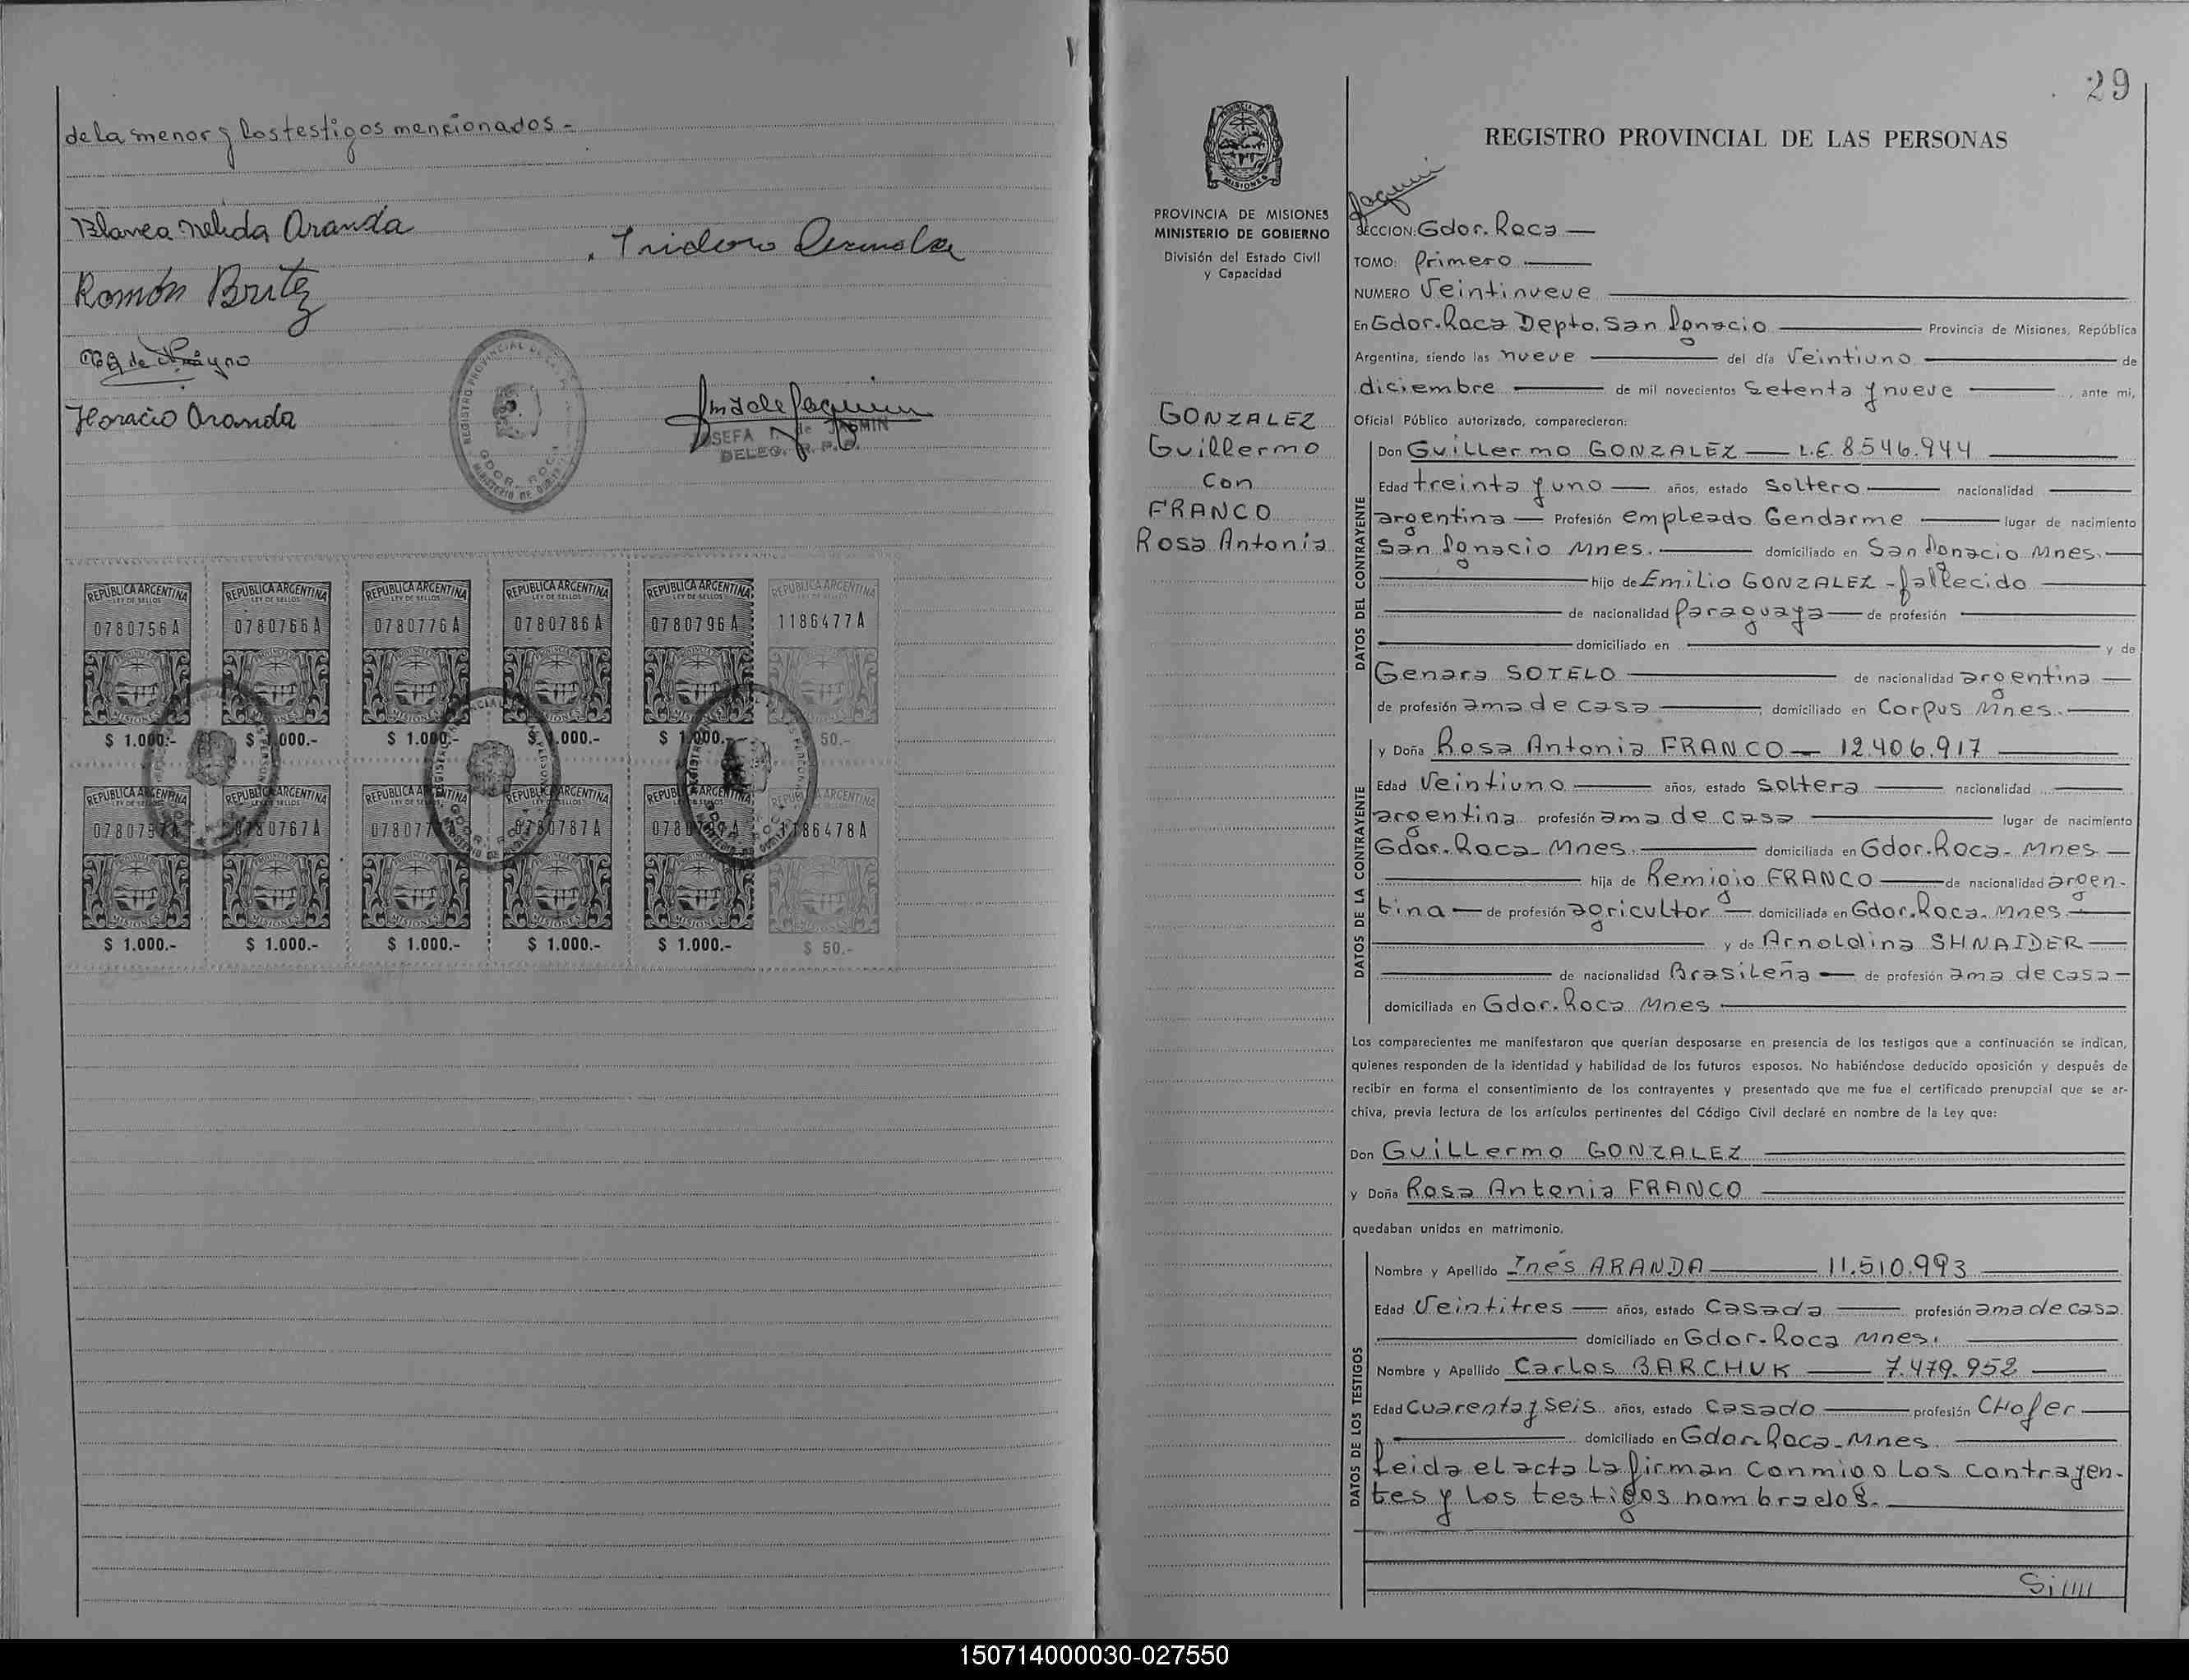 de la menor y los testigos mencionados -
Blanca Nelida Aranda
Ramón Britez
Horacio Aranda
REGISTRO PROVINCIAL DE
GDOR. ROCA
JOSEFA de
DELEG. R. P.
REPUBLICA ARGENTINA REPUBLICA ARGENTINA REPUBLICA ARGENTINA REPUBLICA ARGENTINA REPUBLICA ARGENTINA REPUBLICA ARGENTINA
LEY DE SELLOS LEY DE SELLOS LEY DE SELLOS LEY DE SELLOS LEY DE SELLOS LEY DE SELLOS
0780756A 0780766A 0780776A 0780786A 0780796A 1186477A
MISIONES MISIONES MISIONES MISIONES MISIONES MISIONES
$ 1.000.- $ 1.000.- $ 1.000.- $ 1.000.- $ 1.000.- 50.-
REPUBLICA ARGENTINA REPUBLICA ARGENTINA REPUBLICA ARGENTINA REPUBLICA ARGENTINA REPUBLICA ARGENTINA REPUBLICA ARGENTINA
0780767A 0780787A 1186478A
MISIONES MISIONES MISIONES MISIONES MISIONES
$ 1.000.- $ 1.000.- $ 1.000.- $ 1.000.- $ 1.000.- $ 50.-
29
MISIONES
PROVINCIA DE MISIONES
MINISTERIO DE GOBIERNO
División del Estado Civil
y Capacidad
GONZALEZ
Guillermo
Con
FRANCO
Rosa Antonia
REGISTRO PROVINCIAL DE LAS PERSONAS
SECCION: Gdor. Roca
TOMO: Primero
NUMERO Veintinueve
En Gdor. Roca Depto. San Ignacio Provincia de Misiones, República
Argentina, siendo las nueve del día Veintiuno de
diciembre de mil novecientos Setenta y nueve, ante mi,
Oficial Público autorizado, comparecieron:
DATOS DEL CONTRAYENTE
Don Guillermo GONZALEZ L.E. 8.546.944
Edad treinta y uno años, estado Soltero nacionalidad
argentina Profesión empleado Gendarme lugar de nacimiento
San Ignacio Mnes. domiciliado en San Ignacio Mnes.
hijo de Emilio GONZALEZ - fallecido
de nacionalidad Paraguaya de profesión
domiciliado en y de
Genara SOTELO de nacionalidad argentina
de profesión ama de casa, domiciliado en Corpus Mnes.
DATOS DE LA CONTRAYENTE
y Doña Rosa Antonia FRANCO - 12.406.917
Edad Veintiuno años, estado Soltera nacionalidad
argentina profesión ama de casa lugar de nacimiento
Gdor. Roca Mnes. domiciliada en Gdor. Roca - Mnes
hija de Remigio FRANCO de nacionalidad argen-
tina de profesión agricultor domiciliada en Gdor. Roca. Mnes
y de Arnoldina SHNAIDER
de nacionalidad Brasileña de profesión ama de casa
domiciliada en Gdor. Roca Mnes
Los comparecientes me manifestaron que querían desposarse en presencia de los testigos que a continuación se indican,
quienes responden de la identidad y habilidad de los futuros esposos. No habiéndose deducido oposición y después de
recibir en forma el consentimiento de los contrayentes y presentado que me fue el certificado prenupcial que se ar-
chiva, previa lectura de los artículos pertinentes del Código Civil declaré en nombre de la Ley que:
Don Guillermo GONZALEZ
y Doña Rosa Antonia FRANCO
quedaban unidos en matrimonio.
DATOS DE LOS TESTIGOS
Nombre y Apellido Inés ARANDA 11.510.993
Edad Veintitres años, estado Casada profesión ama de casa.
domiciliado en Gdor. Roca Mnes.
Nombre y Apellido Carlos BARCHUK 7.479.952
Edad Cuarenta y Seis años, estado Casado profesión CHofer
domiciliado en Gdor. Roca - Mnes.
Leida el acta La firman Conmigo Los Contrayen-
tes y Los testigos nombrados.
Si/////
150714000030-027550